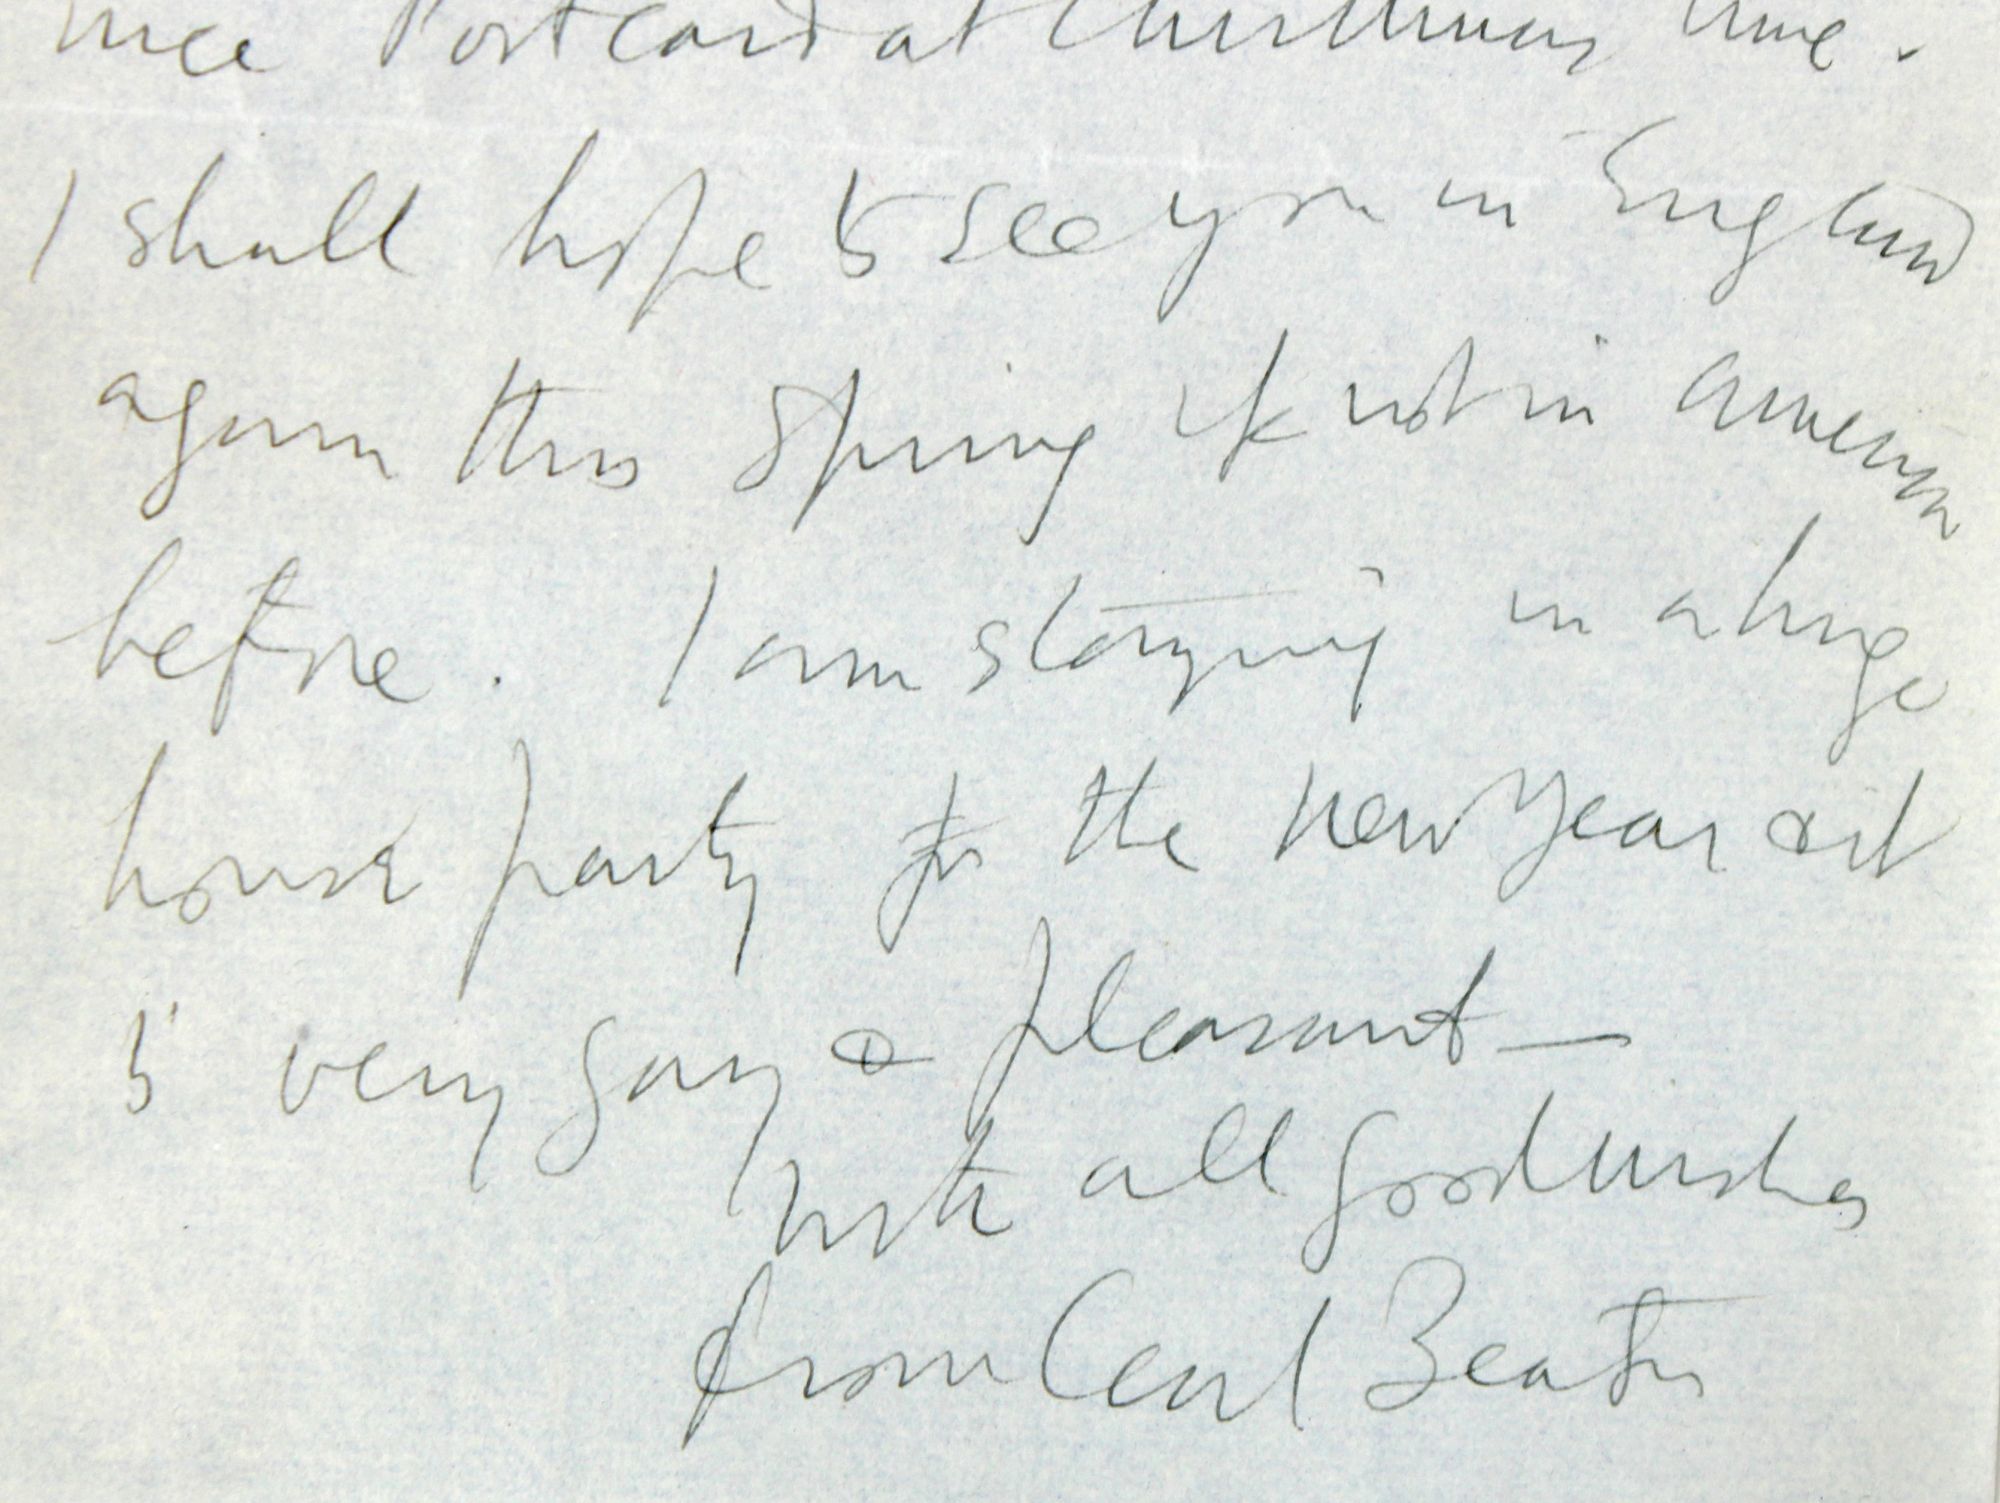 nice Postcard at Christmas time.
I shall hope to see you in England
again this Spring if not in America
before. I am staying in a huge
house party for the New Year & it
is very gay & pleasant —
with all good wishes
from Cecil Beaton